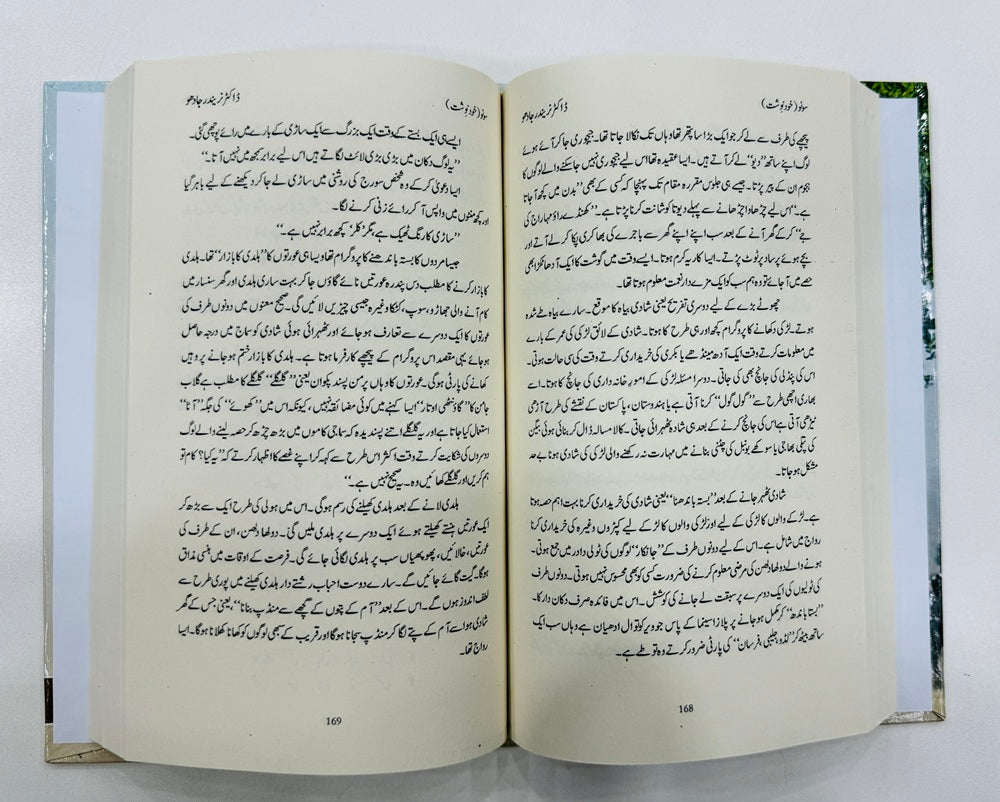 سونو (خود نوشت) ڈاکٹر نریندر جادھو
پیچھے کی طرف سے لے کر جو ایک بڑا سا پتھر تھا وہاں تک نکالا جاتا تھا۔ جیجوری جا کر آئے ہوئے
لوگ اپنے ساتھ ”دیو“ لے کر آتے ہیں۔ ایسا عقیدہ تھا اس لیے جیجوری نہیں جا سکنے والے لوگوں کا
ہجوم ان کے پیر پڑتا۔ جیسے ہی جلوس مقررہ مقام تک پہنچتا کہ کسی کے بھی ”بدن میں کچھ آ جاتا
ہے۔“ اس لیے چڑھاوا چڑھانے سے پہلے دیوتا کو شانت کرنا پڑتا ہے۔ ”کھنڈے راؤ مہاراج کی
جے“ کر کے گھر آنے کے بعد سب اپنے اپنے گھر سے باجرے کی بھاکری پکا کر لے آتے اور
بچے ہوئے پرساد پر ٹوٹ پڑتے۔ ایسا کار یہ کرم ہوتا۔ ایسے وقت میں گوشت کا ایک آدھا ٹکڑا بھی
حصے میں آ جائے تو وہ ہم سب کو ایک مزے دار نعمت معلوم ہوتا تھا۔
چھوٹے بڑے کے لیے دوسری تفریح یعنی شادی بیاہ کا موقع۔ سارے بیاہ طے شدہ
ہوتے۔ لڑکی دکھانے کا پروگرام کچھ اور ہی طرح کا ہوتا۔ شادی کے لائق لڑکی کی عمر کے بارے
میں معلومات کرتے وقت ایک آدھ مینڈھے یا بکری کی خریداری کرتے وقت کی سی حالت ہوتی۔
اس کی پنڈلی کی جانچ بھی کی جاتی۔ دوسرا مسئلہ لڑکی کے امورِ خانہ داری کی جانچ کا ہوتا۔ اسے
بھاری اچھی طرح سے ”گول گول“ کرنا آتی ہے یا ہندوستان، پاکستان کے نقشے کی طرح آڑھی
ٹیڑھی آتی ہے اس کی جانچ کرنے کے بعد ہی شادی ٹھہرائی جاتی۔ کالا مسالہ ڈال کر بنائی ہوئی بیگن
کی پتلی بھاجی یا سوکھے بومبل کی چٹنی بنانے میں مہارت نہ رکھنے والی لڑکی کی شادی ہونا بے حد
مشکل ہو جاتا۔
شادی ٹھہر جانے کے بعد ”بستہ باندھنا“ یعنی شادی کی خریداری کرنا بہت اہم حصہ ہوتا
ہے۔ لڑکے والوں کا لڑکی کے لیے اور لڑکی والوں کا لڑکے کے لیے کپڑوں وغیرہ کی خریداری کرنا
رواج میں شامل ہے۔ اس کے لیے دونوں طرف کے ”جانکار“ لوگوں کی ٹولی دادر میں جمع ہوتی۔
ہونے والے دولھا دلھن کی مرضی معلوم کرنے کی ضرورت کسی کو بھی محسوس نہیں ہوتی۔ دونوں طرف
کی ٹولیوں کی ایک دوسرے پر سبقت لے جانے کی کوشش۔ اس میں فائدہ صرف دکان دار کا۔
”بستا باندھ“ کر مکمل ہو جانے پر پلازا سینما کے پاس جو ویر کوتوال ادھیان ہے وہاں سب ایک
ساتھ بیٹھ کر ”لڈو جلیبی، فرسان“ کی پارٹی ضرور کرتے وہ تو طے ہے۔
168
سونو (خود نوشت) ڈاکٹر نریندر جادھو
ایسے ہی ایک بستے کے وقت ایک بزرگ سے ایک ساڑی کے بارے میں رائے پوچھی گئی۔
”یہ لوگ دکان میں بڑی بڑی لائٹ لگاتے ہیں اس لیے برابر سمجھ میں نہیں آتا۔“
ایسا دعویٰ کر کے وہ شخص سورج کی روشنی میں ساڑی لے جا کر دیکھنے کے لیے باہر گیا
اور کچھ منٹوں میں واپس آ کر رائے زنی کرنے لگا۔
”ساڑی کا رنگ ٹھیک ہے، مگر ’کلر‘ کچھ برابر نہیں ہے۔“
جیسا مردوں کا بستہ باندھنے کا پروگرام تھا ویسا ہی عورتوں کا ”ہلدی کا بازار“ تھا۔ ہلدی
کا بازار کرنے کا مطلب دس پندرہ عورتیں نائے گاؤں جا کر بہت ساری ہلدی اور گھر سنسار میں
کام آنے والی جھاڑو، سوپ، کنکا وغیرہ جیسی چیزیں لائیں گی۔ صحیح معنوں میں دونوں طرف کی
عورتوں کا ایک دوسرے سے تعارف ہو جائے اور ٹھہرائی ہوئی شادی کو سماج میں درجہ حاصل
ہو جائے یہی مقصد اس پروگرام کے پیچھے کارفرما ہوتا ہے۔ ہلدی کا بازار ختم ہو جانے پر وہیں
کھانے کی پارٹی ہوگی۔ عورتوں کا وہاں پر من پسند پکوان یعنی ”گلگلے“ گلگلے کا مطلب ہے گلاب
جامن کا ”گاؤنٹھی اوتار“ ایسا کہنے میں کوئی مضائقہ نہیں، کیونکہ اس میں ”کھوئے“ کی جگہ ”آٹا“
استعمال کیا جاتا ہے اور یہ گلگلے اتنے پسندیدہ کہ سماجی کاموں میں بڑھ چڑھ کر حصہ لینے والے لوگ
دوسروں کی شکایت کرتے وقت اکثر اس طرح سے کہہ کر اپنے غصے کا اظہار کرتے کہ ”یہ کیا؟ کام تو
ہم کریں اور گلگلے کھائیں وہ۔ یہ صحیح نہیں ہے۔“
ہلدی لانے کے بعد ہلدی کھیلنے کی رسم ہوگی۔ اس میں ہولی کی طرح ایک سے بڑھ کر
ایک عورتیں ہنستے کھیلتے ہوئے ایک دوسرے پر ہلدی ملیں گی۔ دولھا دلھن، ان کے طرف کی
عورتیں، خالائیں، پھوپھیاں سب پر ہلدی لگائی جائے گی۔ فرصت کے اوقات میں ہنسی مذاق
ہوگا۔ گیت گائے جائیں گے۔ سارے دوست احباب رشتے دار ہلدی کھیلنے میں پوری طرح سے
لطف اندوز ہوں گے۔ اس کے بعد ”آم کے پتوں کے گچھے سے منڈپ بنانا“، یعنی جس کے گھر
شادی ہو اسے آم کے پتے لگا کر منڈپ سجانا ہوگا اور قریب کے سبھی لوگوں کو کھانا کھلانا ہوگا۔ ایسا
رواج تھا۔
169